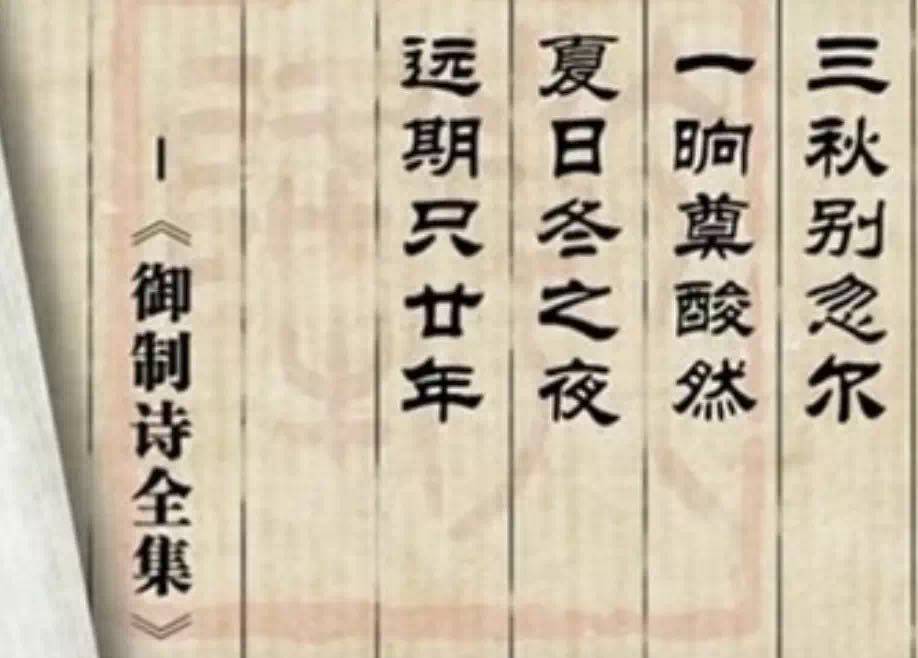 三秋别忽尔
一晌奠酸然
夏日冬之夜
远期只廿年
—《御制诗全集》